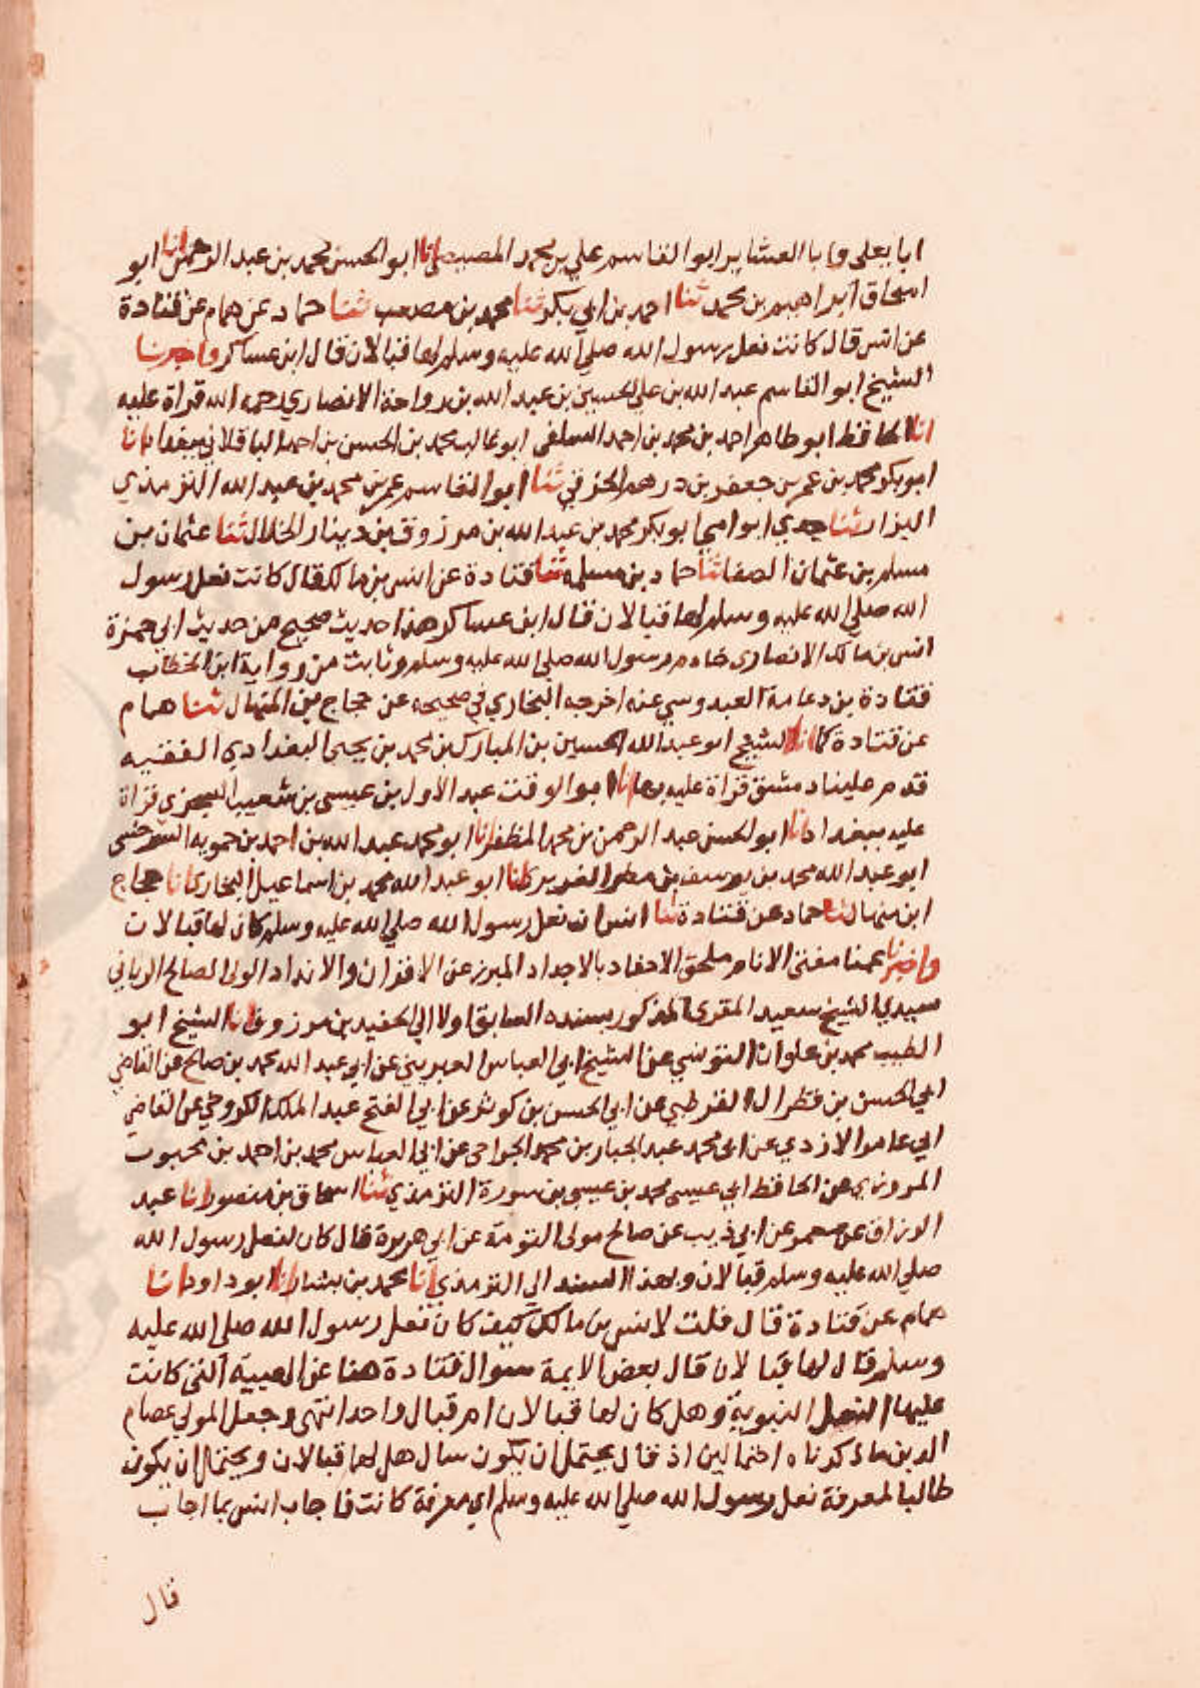 ابا يعلى وابا العشاير ابو القاسم علي بن محمد المصيصي انا ابو الحسن محمد بن عبد الرحمن انا ابو
اسحاق ابراهيم بن محمد ثنا احمد بن ابي بكر ثنا محمد بن مصعب ثنا حماد عن همام عن قتادة
عن انس قال كانت نعل رسول الله صلي الله عليه وسلم لها قبالان قال ابن عساكر واخبرنا
الشيخ ابو القاسم عبد الله بن علي الحسين بن عبد الله بن رواحة الانصاري رحمه الله قراة عليه
انا الحافظ ابو طاهر احمد بن محمد بن احمد السلفي ابو غالب محمد بن الحسن بن احمد الباقلاني ببغداد انا
ابو بكر محمد بن عمر بن جعفر بن درهم الخرقي ثنا ابو القاسم عمر بن محمد بن عبد الله الترمذي
البزار ثنا جدي ابو امي ابو بكر محمد بن عبد الله بن مرزوق بن دينار الخلال ثنا عثمان بن
مسلم بن عثمان الصفا ثنا حماد بن مسلمه ثنا قتادة عن انس بن مالك قال كانت نعل رسول
الله صلي الله عليه وسلم لها قبالان قال ابن عساكر هذا حديث صحيح من حديث ابي حمزة
انس بن مالك الانصاري خادم رسول الله صلي الله عليه وسلم وثابت من رواية ابن الخطاب
قتادة بن دعامة العبدوسي عنه اخرجه البخاري في صحيحه عن حجاج بن المنهال ثنا همام
عن قتادة كما انا الشيخ ابو عبد الله الحسين بن المبارك بن محمد بن يحيى البغدادي الفقيه
قدم علينا دمشق قراة عليه بها انا ابو الوقت عبد الاول بن عيسى بن شعيب السجزي قراة
عليه ببغداد انا ابو الحسن عبد الرحمن بن محمد المظفر انا ابو محمد عبد الله بن احمد بن حمويه السرخسي
ابو عبد الله محمد بن يوسف بن مطر الفربري انا ابو عبد الله محمد بن اسماعيل البخاري انا حجاج
ابن منهال ثنا حماد عن قتادة ثنا انس ان نعل رسول الله صلي الله عليه وسلم كان لها قبالان
واخبرنا عمنا مفتي الانام ملحق الاحفاد بالاجداد المبرز عن الاقران والانداد الولي الصالح الرباني
سيدي الشيخ سعيد المقري المذكور بسنده السابق اولا الي الحفيد بن مرزوق انا الشيخ ابو
الطيب محمد بن علوان التونسي عن الشيخ ابي العباس الغبريني عن ابي عبد الله محمد بن صالح عن القاضي
ابي الحسن بن قطرال القرطبي عن ابي الحسن بن كوثر عن ابي الفتح عبد الملك الكروخي عن القاضي
ابي عامر الازدي عن ابي محمد عبد الجبار بن محمد الجراحي عن ابي العباس محمد بن احمد بن محبوب
المروزي عن الحافظ ابي عيسى محمد بن عيسى بن سورة الترمذي ثنا اسحاق بن منصور انا عبد
الرزاق عن معمر عن ابي ذيب عن صالح مولى التومة عن ابي هريرة قال كان لنعل رسول الله
صلي الله عليه وسلم قبالان وبهذا السند الي الترمذي انا محمد بن بشار انا ابو داود انا
همام عن قتادة قال قلت لانس بن مالك كيف كان نعل رسول الله صلي الله عليه
وسلم قال لها قبالان قال بعض الايمة سوال قتادة هنا عن الهيية التي كانت
عليها النعل النبوية وهل كان لها قبالان ام قبال واحد انتهى وجعل المولي عصام
الدين ما ذكرناه احتمالين اذ قال يحتمل ان يكون سال هل لها قبالان ويحتمل ان يكون
طالبا لمعرفة نعل رسول الله صلي الله عليه وسلم اي معرفة كانت فاجاب انس بما اجاب
قال